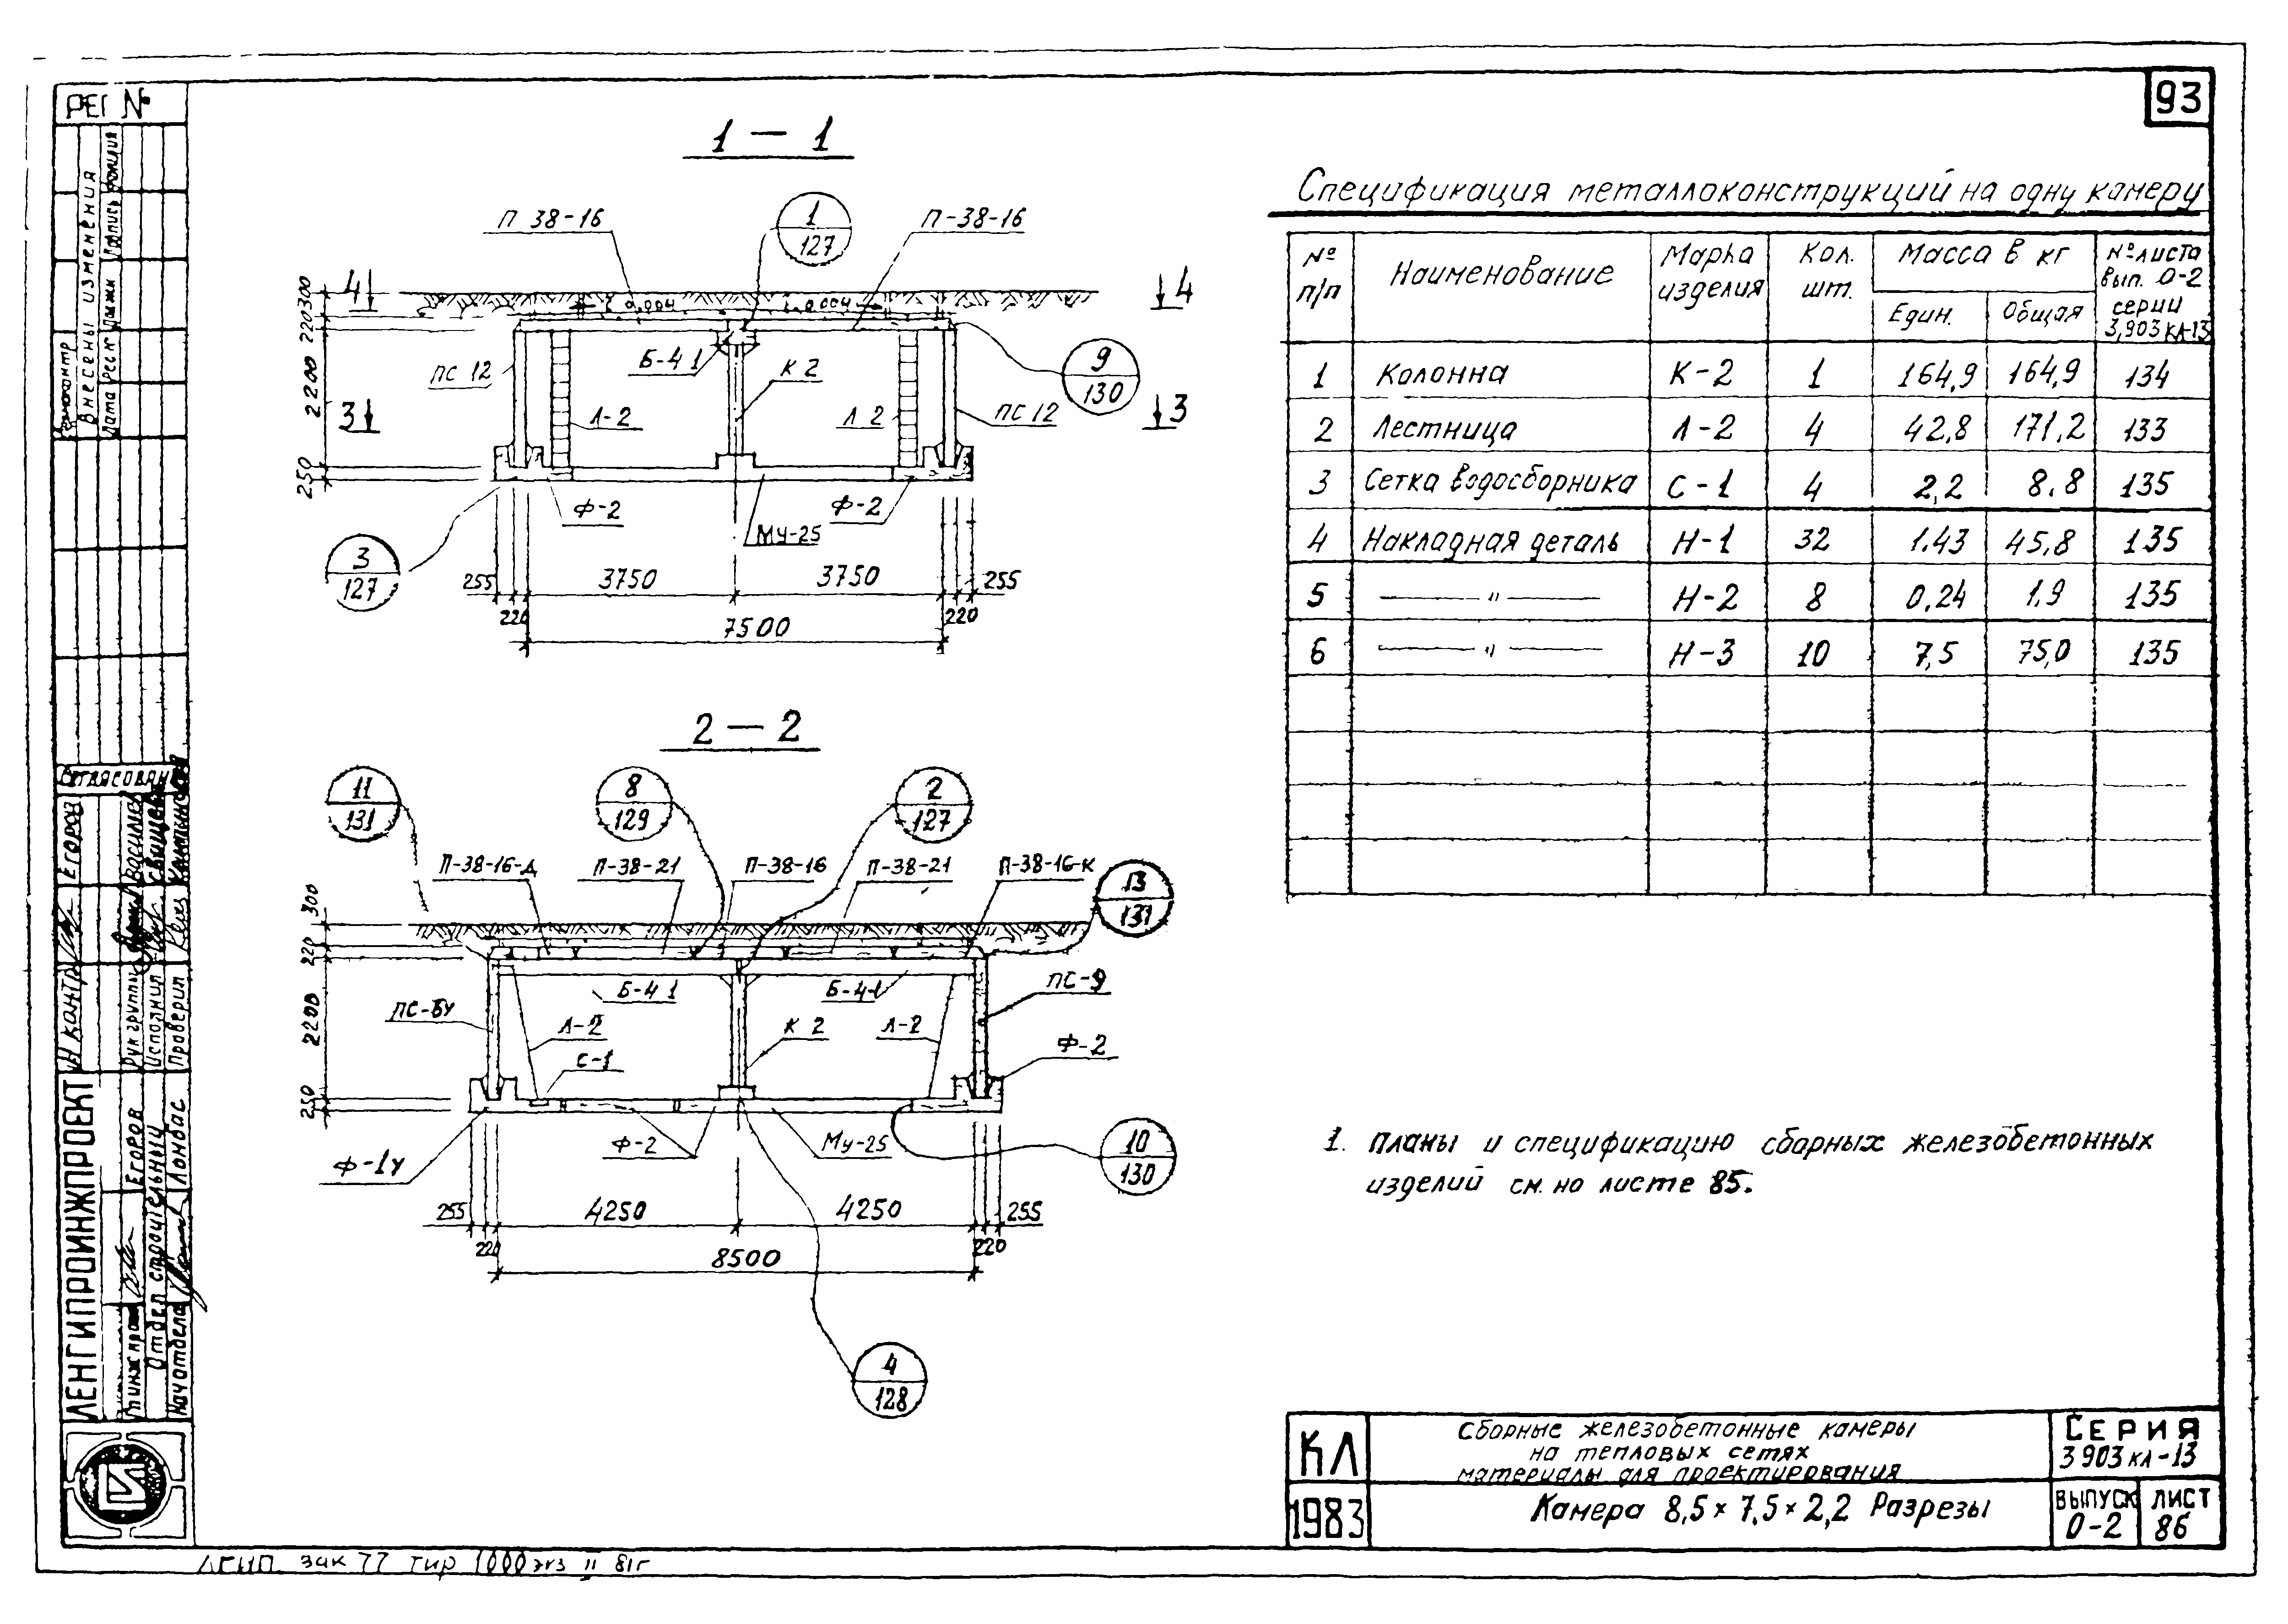 93
РЕГ №
Внесены изменения
1 — 1
П 38-16
1
127
П-38-16
4
4
300
220
2200
250
0,004
0,004
Б-41
К 2
ПС 12
9
130
3
3
Л-2
Л 2
ПС 12
Ф-2
Ф-2
МУ-25
3
127
255
3750
3750
255
220
220
7500
2 — 2
11
131
8
129
2
127
П-38-16-Д
П-38-21
П-38-16
П-38-21
П-38-16-К
13
131
300
220
2200
250
Б-41
Б-41
ПС-9
ПС-6У
Л-2
К 2
Л-2
Ф-2
С-1
Ф-2
Му-25
Ф-1У
10
130
255
4250
4250
255
220
220
8500
4
128
Спецификация металлоконструкций на одну камеру
№ п/п Наименование Марка изделия Кол. шт. Масса в кг № листа вып. 0-2 серии 3,903 КЛ-13
Един. Общая
1 Колонна К-2 1 164,9 164,9 134
2 Лестница Л-2 4 42,8 171,2 133
3 Сетка водосборника С-1 4 2,2 8,8 135
4 Накладная деталь Н-1 32 1.43 45,8 135
5 — " — Н-2 8 0,24 1,9 135
6 — " — Н-3 10 7,5 75,0 135
1. Планы и спецификацию сборных железобетонных
изделий см. на листе 85.
Согласовано
Егоров
Н контр
Рук группы
Исполнил
Проверил
ЛЕНГИПРОИНЖПРОЕКТ
Егоров
Отдел строительный
Нач отдела
Ломбас
КЛ
1983
Сборные железобетонные камеры
на тепловых сетях
материалы для проектирования
Камера 8,5 × 7,5 × 2,2 Разрезы
СЕРИЯ
3 903 КЛ-13
ВЫПУСК
0-2
ЛИСТ
86
зак 77 тир 1000 экз II 81г